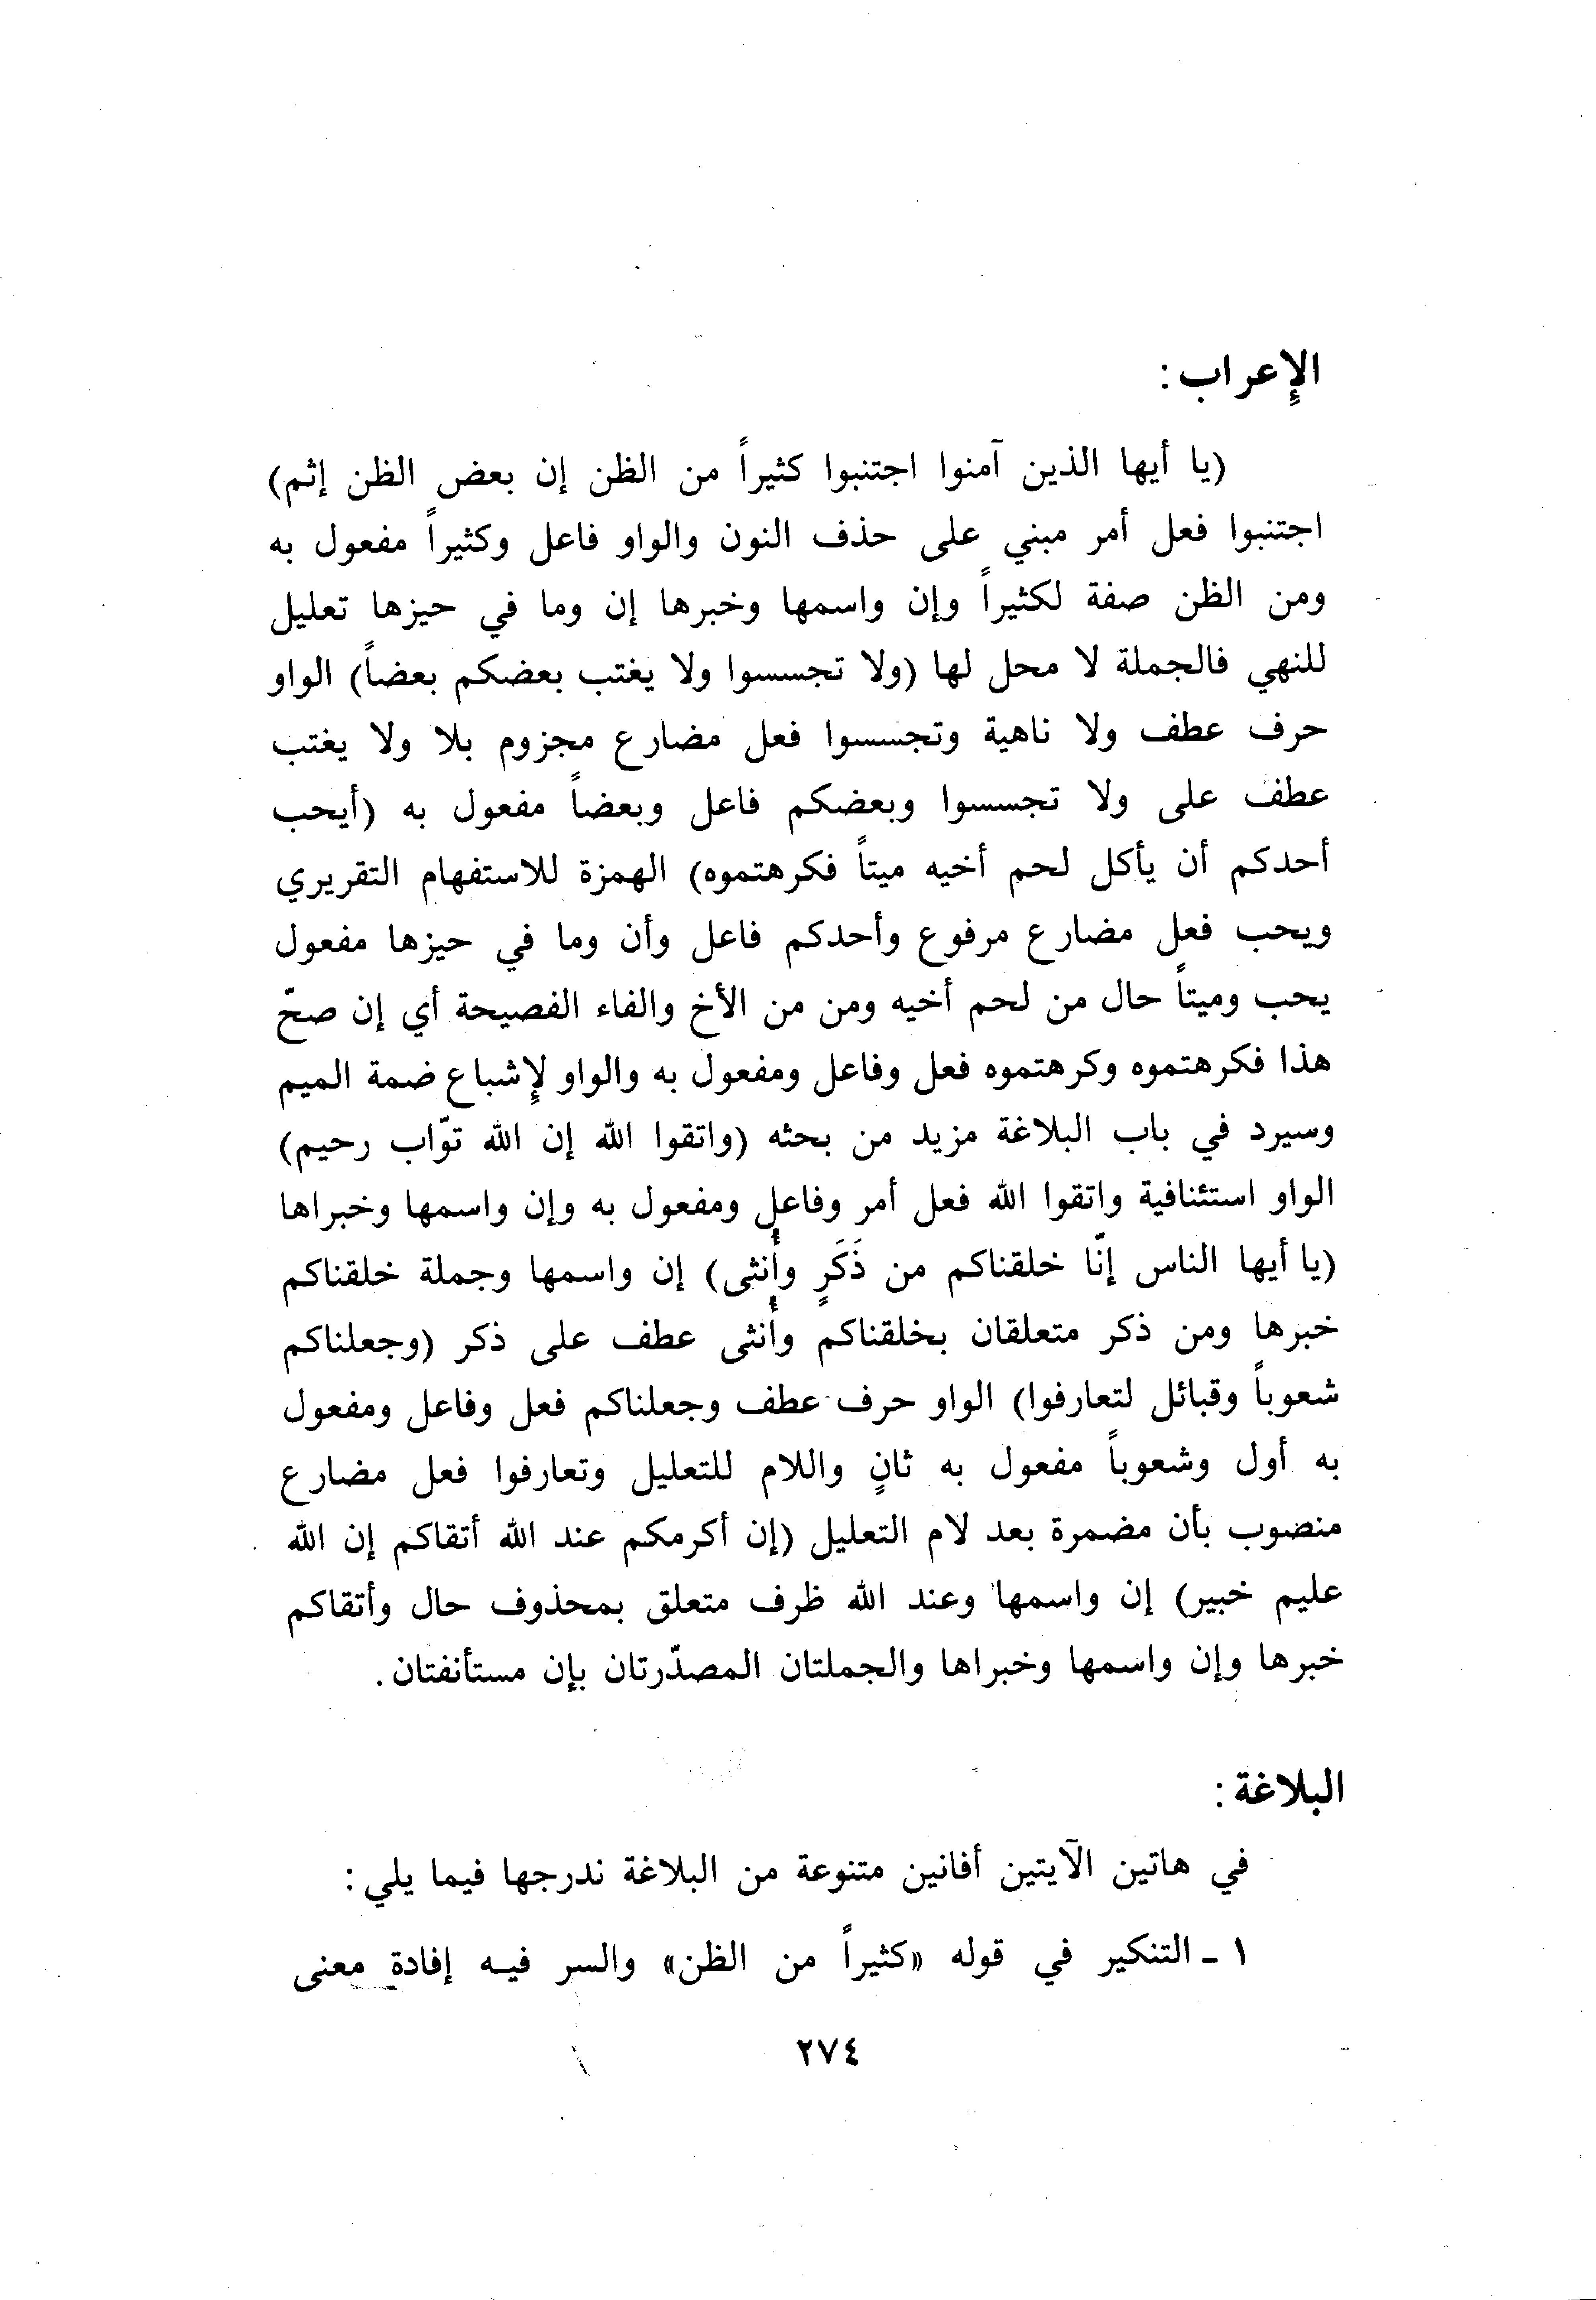 الإعراب :
(يا أيها الذين آمنوا اجتنبوا كثيراً من الظن إن بعض الظن إثم)
اجتنبوا فعل أمر مبني على حذف النون والواو فاعل وكثيراً مفعول به
ومن الظن صفة لكثيراً وإن واسمها وخبرها إن وما في حيزها تعليل
للنهي فالجملة لا محل لها (ولا تجسسوا ولا يغتب بعضكم بعضاً) الواو
حرف عطف ولا ناهية وتجسسوا فعل مضارع مجزوم بلا ولا يغتب
عطف على ولا تجسسوا وبعضكم فاعل وبعضاً مفعول به (أيحب
أحدكم أن يأكل لحم أخيه ميتاً فكرهتموه) الهمزة للاستفهام التقريري
ويحب فعل مضارع مرفوع وأحدكم فاعل وأن وما في حيزها مفعول
يحب وميتاً حال من لحم أخيه ومن من الأخ والفاء الفصيحة أي إن صحّ
هذا فكرهتموه وكرهتموه فعل وفاعل ومفعول به والواو لإشباع ضمة الميم
وسيرد في باب البلاغة مزيد من بحثه (واتقوا الله إن الله توّاب رحيم)
الواو استئنافية واتقوا الله فعل أمر وفاعل ومفعول به وإن واسمها وخبراها
(يا أيها الناس إنّا خلقناكم من ذَكَرٍ وأُنثى) إن واسمها وجملة خلقناكم
خبرها ومن ذكر متعلقان بخلقناكم وأُنثى عطف على ذكر (وجعلناكم
شعوباً وقبائل لتعارفوا) الواو حرف عطف وجعلناكم فعل وفاعل ومفعول
به أول وشعوباً مفعول به ثانٍ واللام للتعليل وتعارفوا فعل مضارع
منصوب بأن مضمرة بعد لام التعليل (إن أكرمكم عند الله أتقاكم إن الله
عليم خبير) إن واسمها وعند الله ظرف متعلق بمحذوف حال وأتقاكم
خبرها وإن واسمها وخبراها والجملتان المصدّرتان بإن مستأنفتان .
البلاغة :
في هاتين الآيتين أفانين متنوعة من البلاغة ندرجها فيما يلي :
١ ـ التنكير في قوله «كثيراً من الظن» والسر فيه إفادة معنى
٢٧٤